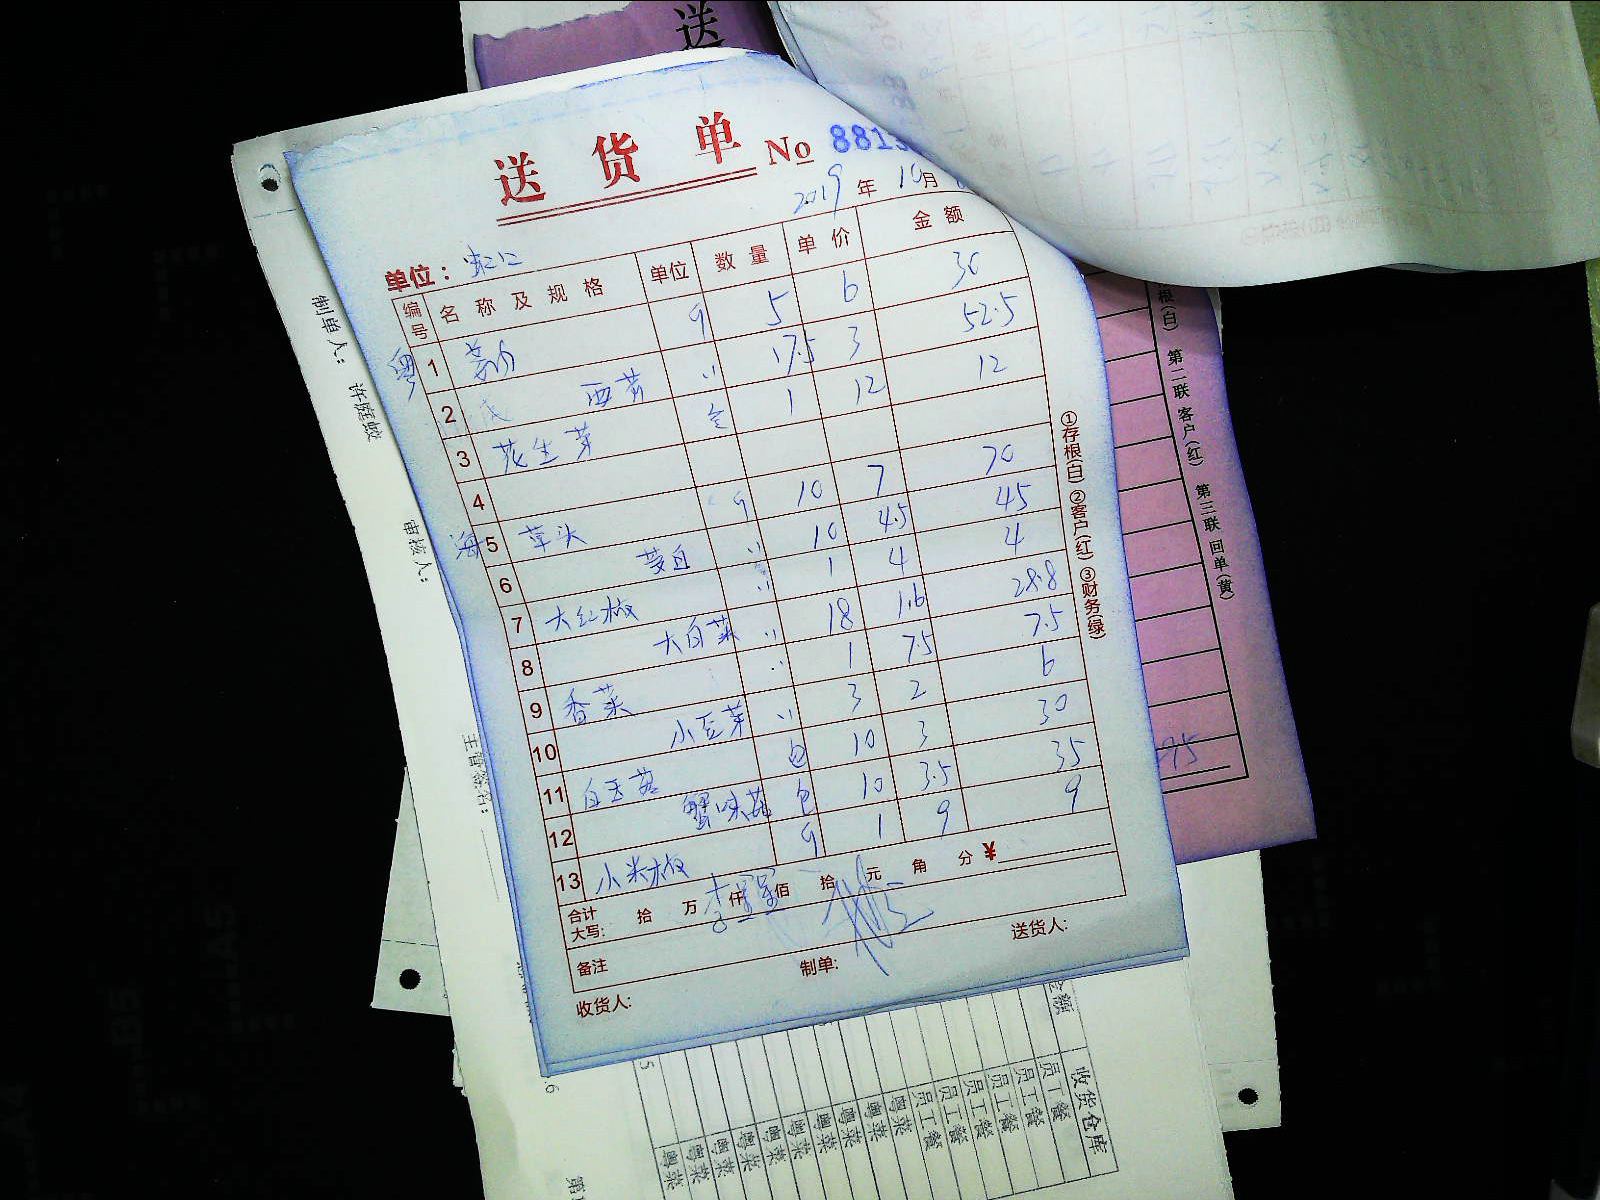 送
送 货 单 No 881
2019 年 10 月
单位：虹江
编号 名 称 及 规 格 单位 数 量 单 价 金 额
粤 1 5 6 30
2 西芹 〃 17.5 3 52.5
3 花生芽 1 12 12
4
海 5 草头 10 7 70
6 茭白 〃 10 4.5 45
7 大红椒 〃 1 4 4
8 大白菜 〃 18 1.6 28.8
9 香菜 〃 1 7.5 7.5
10 小豆芽 〃 3 2 6
11 白玉菇 包 10 3 30
12 蟹味菇 包 10 3.5 35
13 小米椒 1 9 9
合计大写： 拾 万 仟 佰 拾 元 角 分 ¥
备注
收货人: 制单: 送货人:
①存根(白) ②客户(红) ③财务(绿)
根(白) 第二联 客户(红) 第三联 回单(黄)
制单人：
审核人：
金额 收货仓库
员工餐
员工餐
员工餐
员工餐
员工餐
员工餐
粤菜
粤菜
粤菜
粤菜
粤菜
粤菜
粤菜
粤菜
粤菜